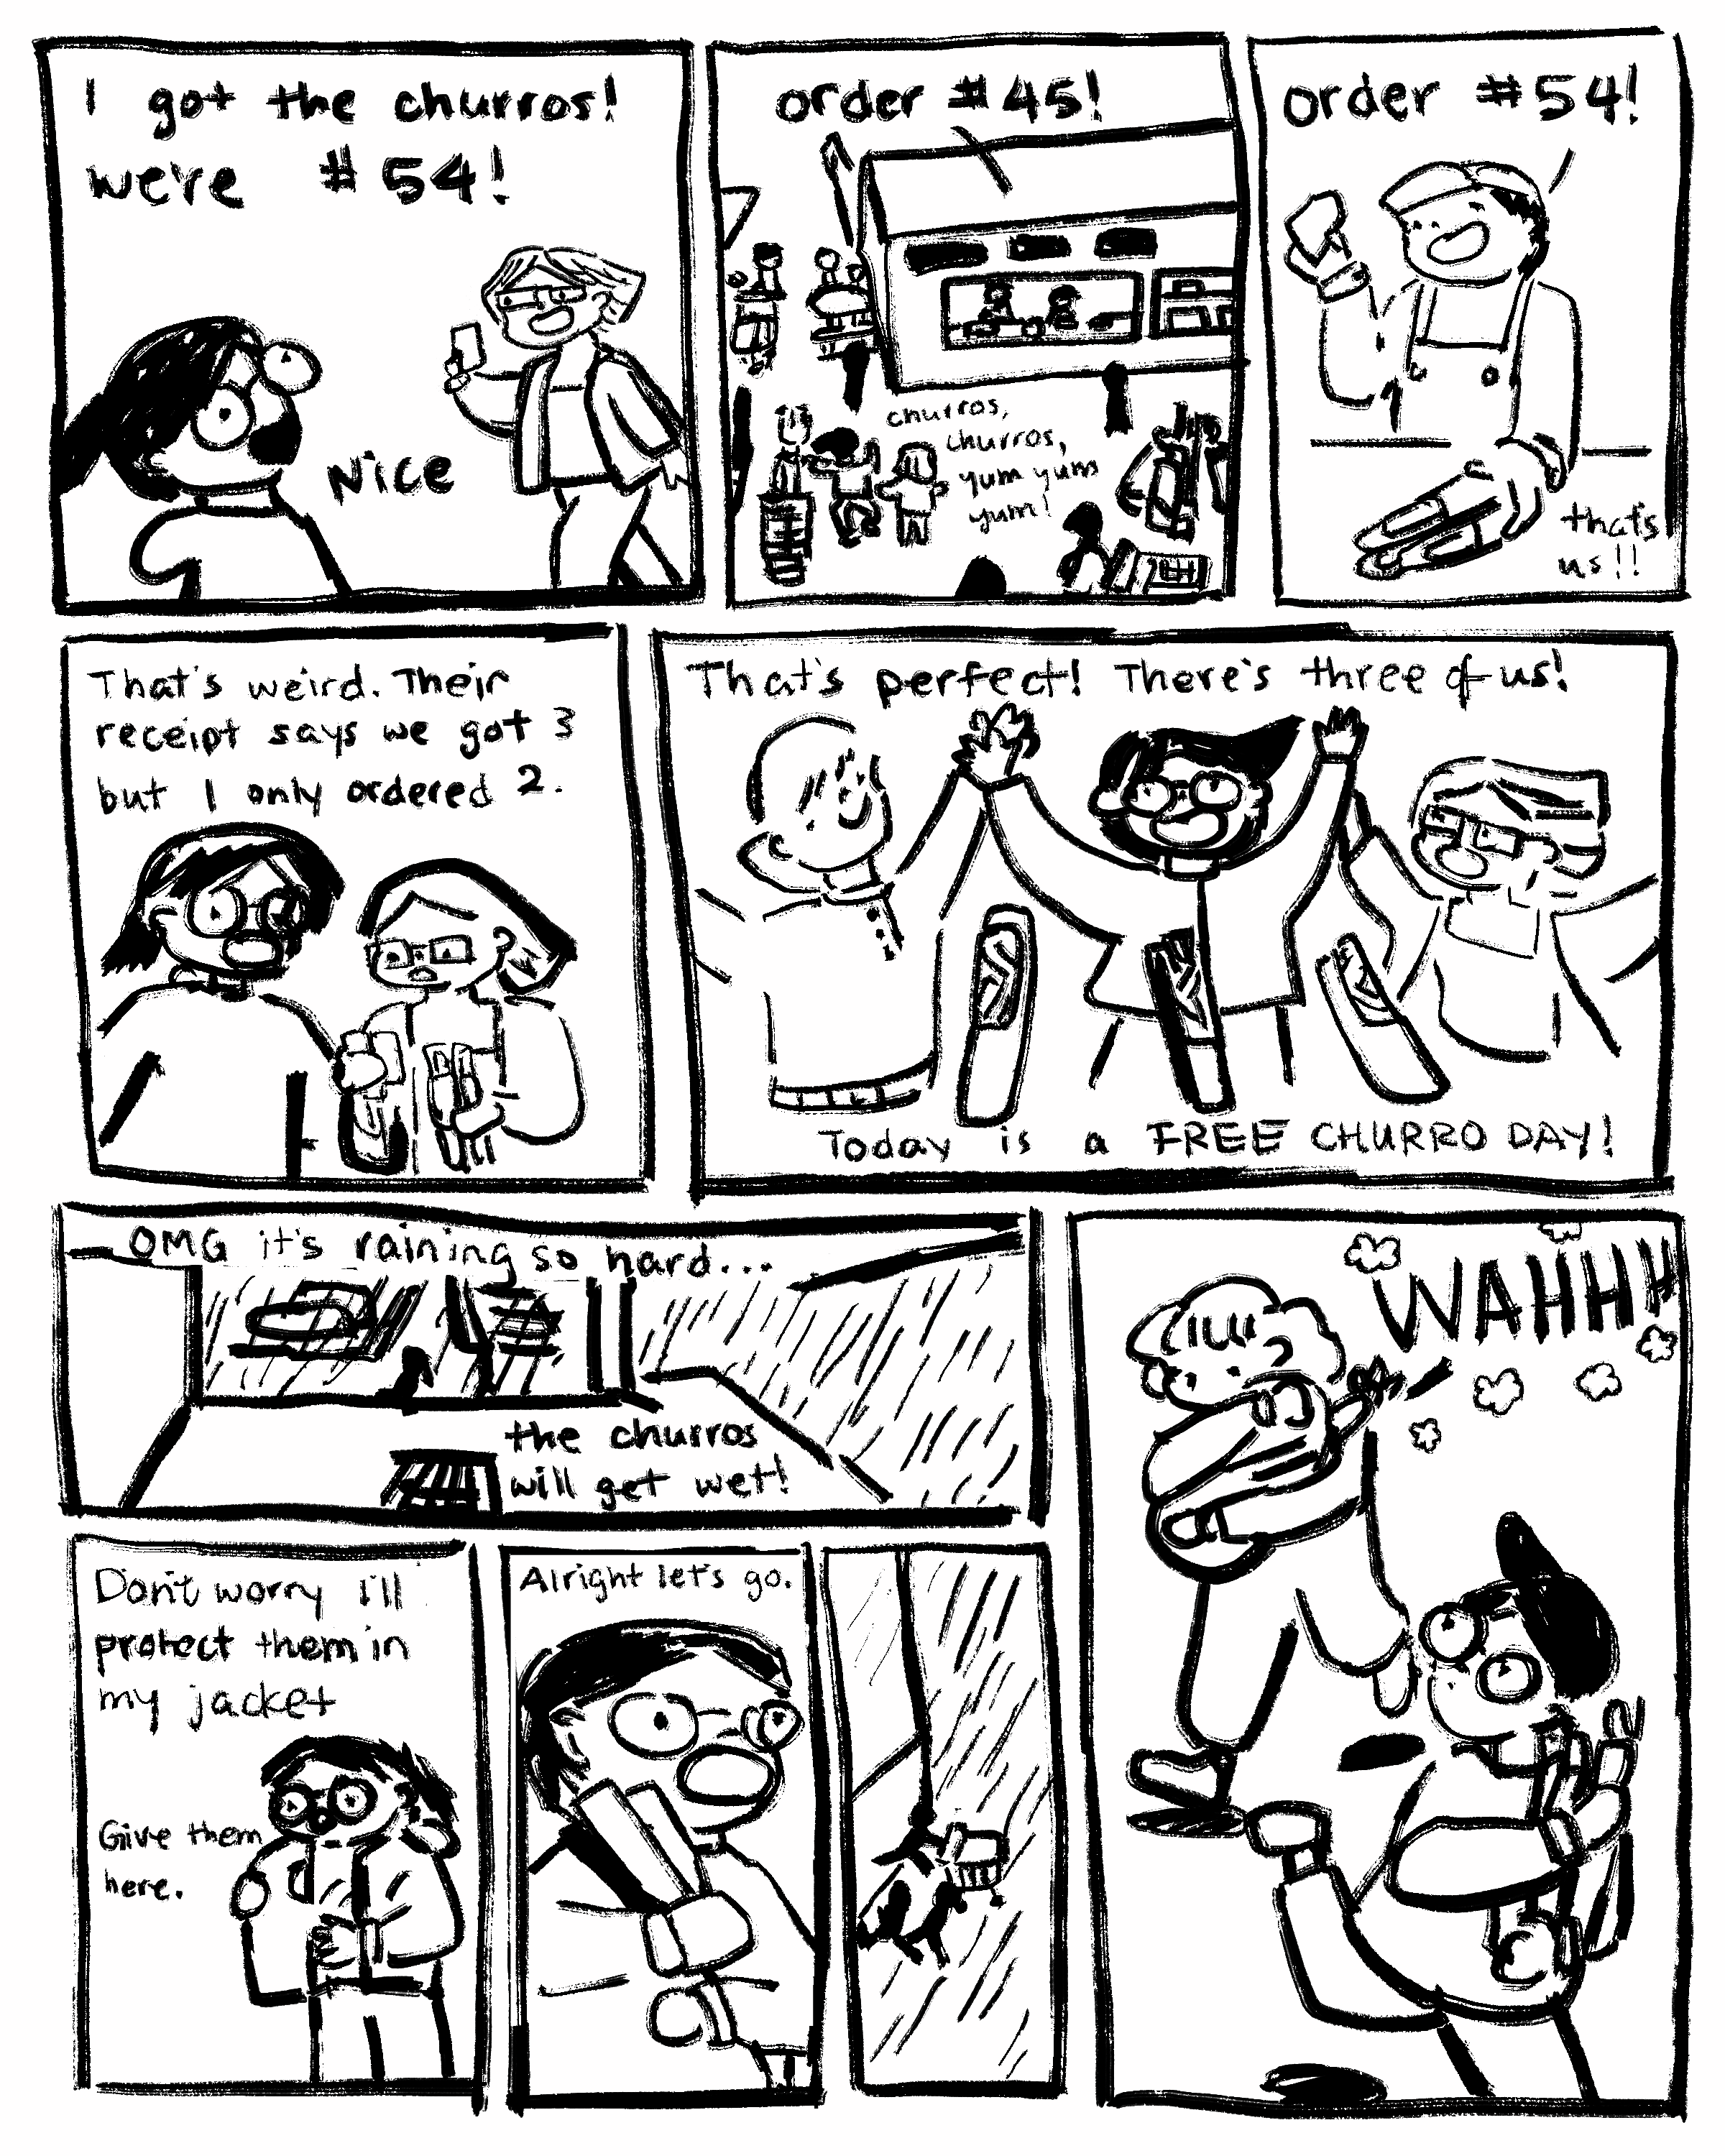 I got the churros!
we're #54!
Nice
order #45!
churros,
churros,
yum yum
yum!
order #54!
that's
us!!
That's weird. Their
receipt says we got 3
but I only ordered 2.
That's perfect! There's three of us!
Today is a FREE CHURRO DAY!
OMG it's raining so hard...
the churros
will get wet!
WAHHH
Don't worry I'll
protect them in
my jacket
Give them
here.
Alright let's go.